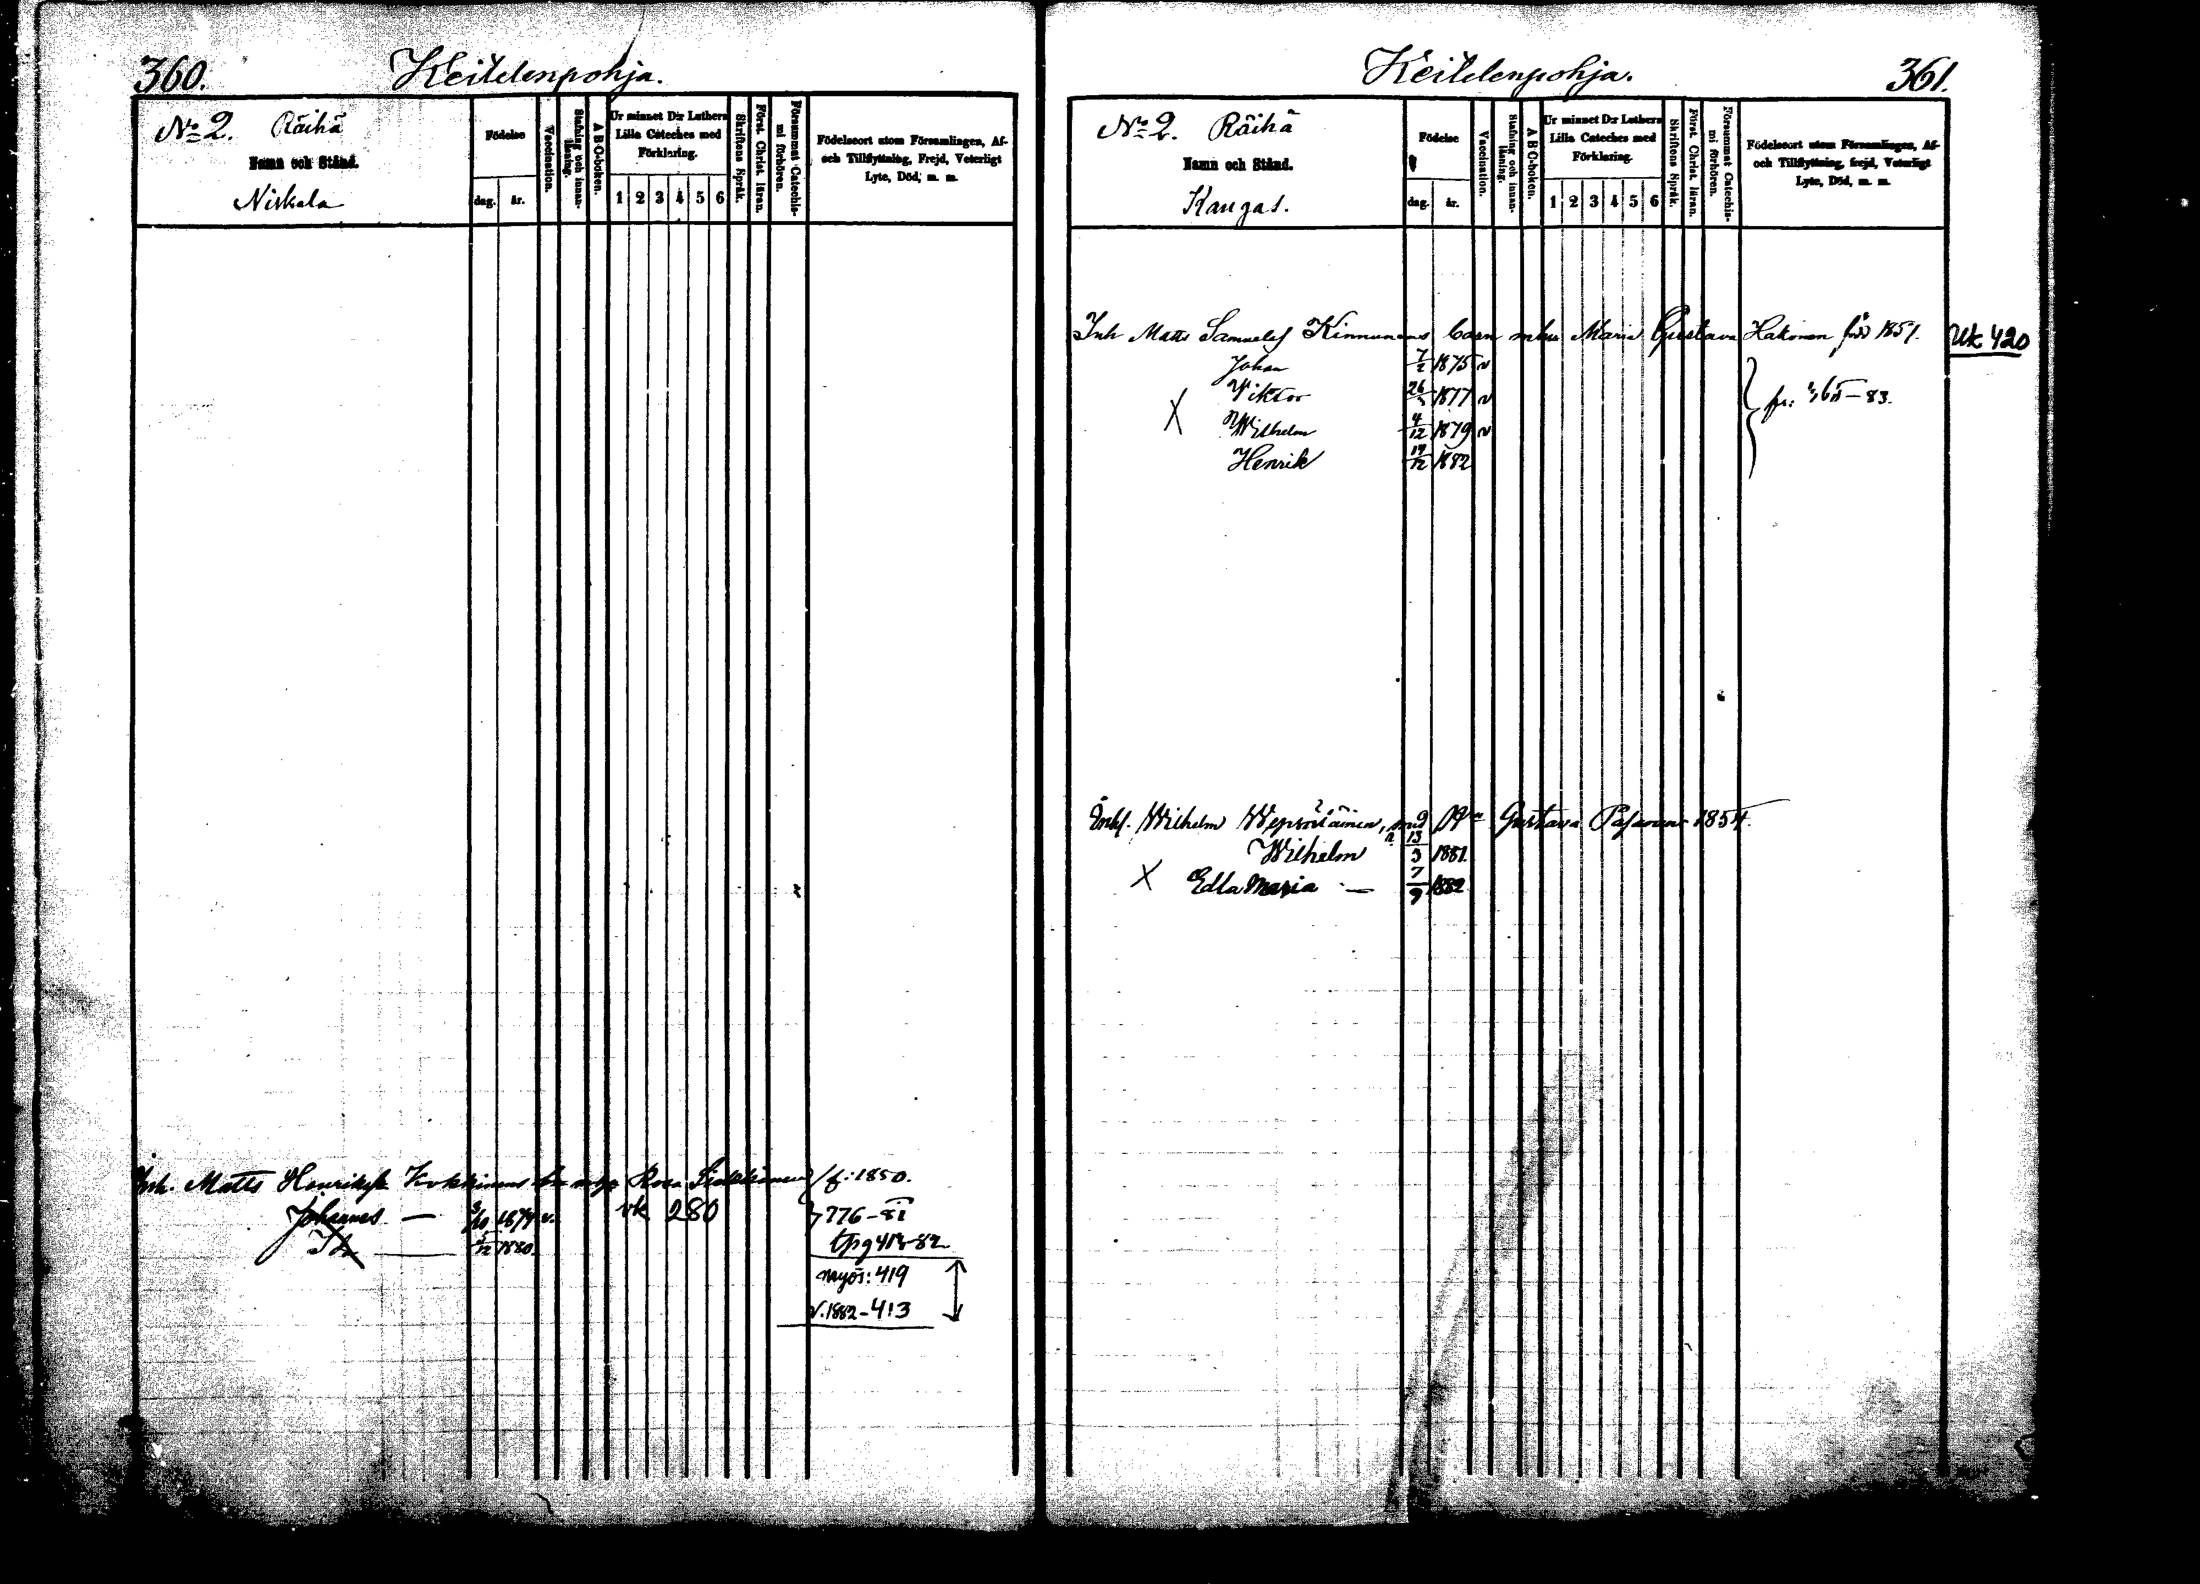 360. Keitelenpohja.
No 2. Räihä
Namn och Stånd.
Niskala
Födelse
dag. år.
Vaccination.
Stafning och innanläsning.
A B C-boken.
Ur minnet D:r Luthers Lilla Cateches med Förklaring.
1 2 3 4 5 6
Skriftens Språk.
Först. Christ. läran.
Försummat Catechismi förhören.
Födelseort utom Församlingen, Af- och Tillflyttning, Frejd, Veterligt Lyte, Död, m. m.
Inh. Matts Henriksn Rosa f: 1850.
Johannes — 1874 v. vk 280 776-81
— 1880. tpg 413-82
myös: 419
v. 1882-413
Keitelenpohja. 361.
No 2. Räihä
Namn och Stånd.
Kangas.
Födelse
dag. år.
Vaccination.
Stafning och innanläsning.
A B C-boken.
Ur minnet D:r Luthers Lilla Cateches med Förklaring.
1 2 3 4 5 6
Skriftens Språk.
Först. Christ. läran.
Försummat Catechismi förhören.
Födelseort utom Församlingen, Af- och Tillflyttning, frejd, Veterligt Lyte, Död, m. m.
Inh Matts Samuels Kinnunens barn Maria Gustava Hakonen född 1851. Uk 420
Johan 7/2 1875 v
X Viktor 1877 v 83.
Wilhelm 4/12 1879 v
Henrik 19/12 1882
Wilhelm med Gustava Pasanen 1854
Wilhelm 13/3 1881
X Edla Maria — 7/9 1882